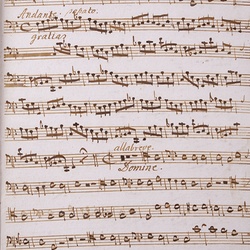 Andante.
gratias
allabreve
Domine.